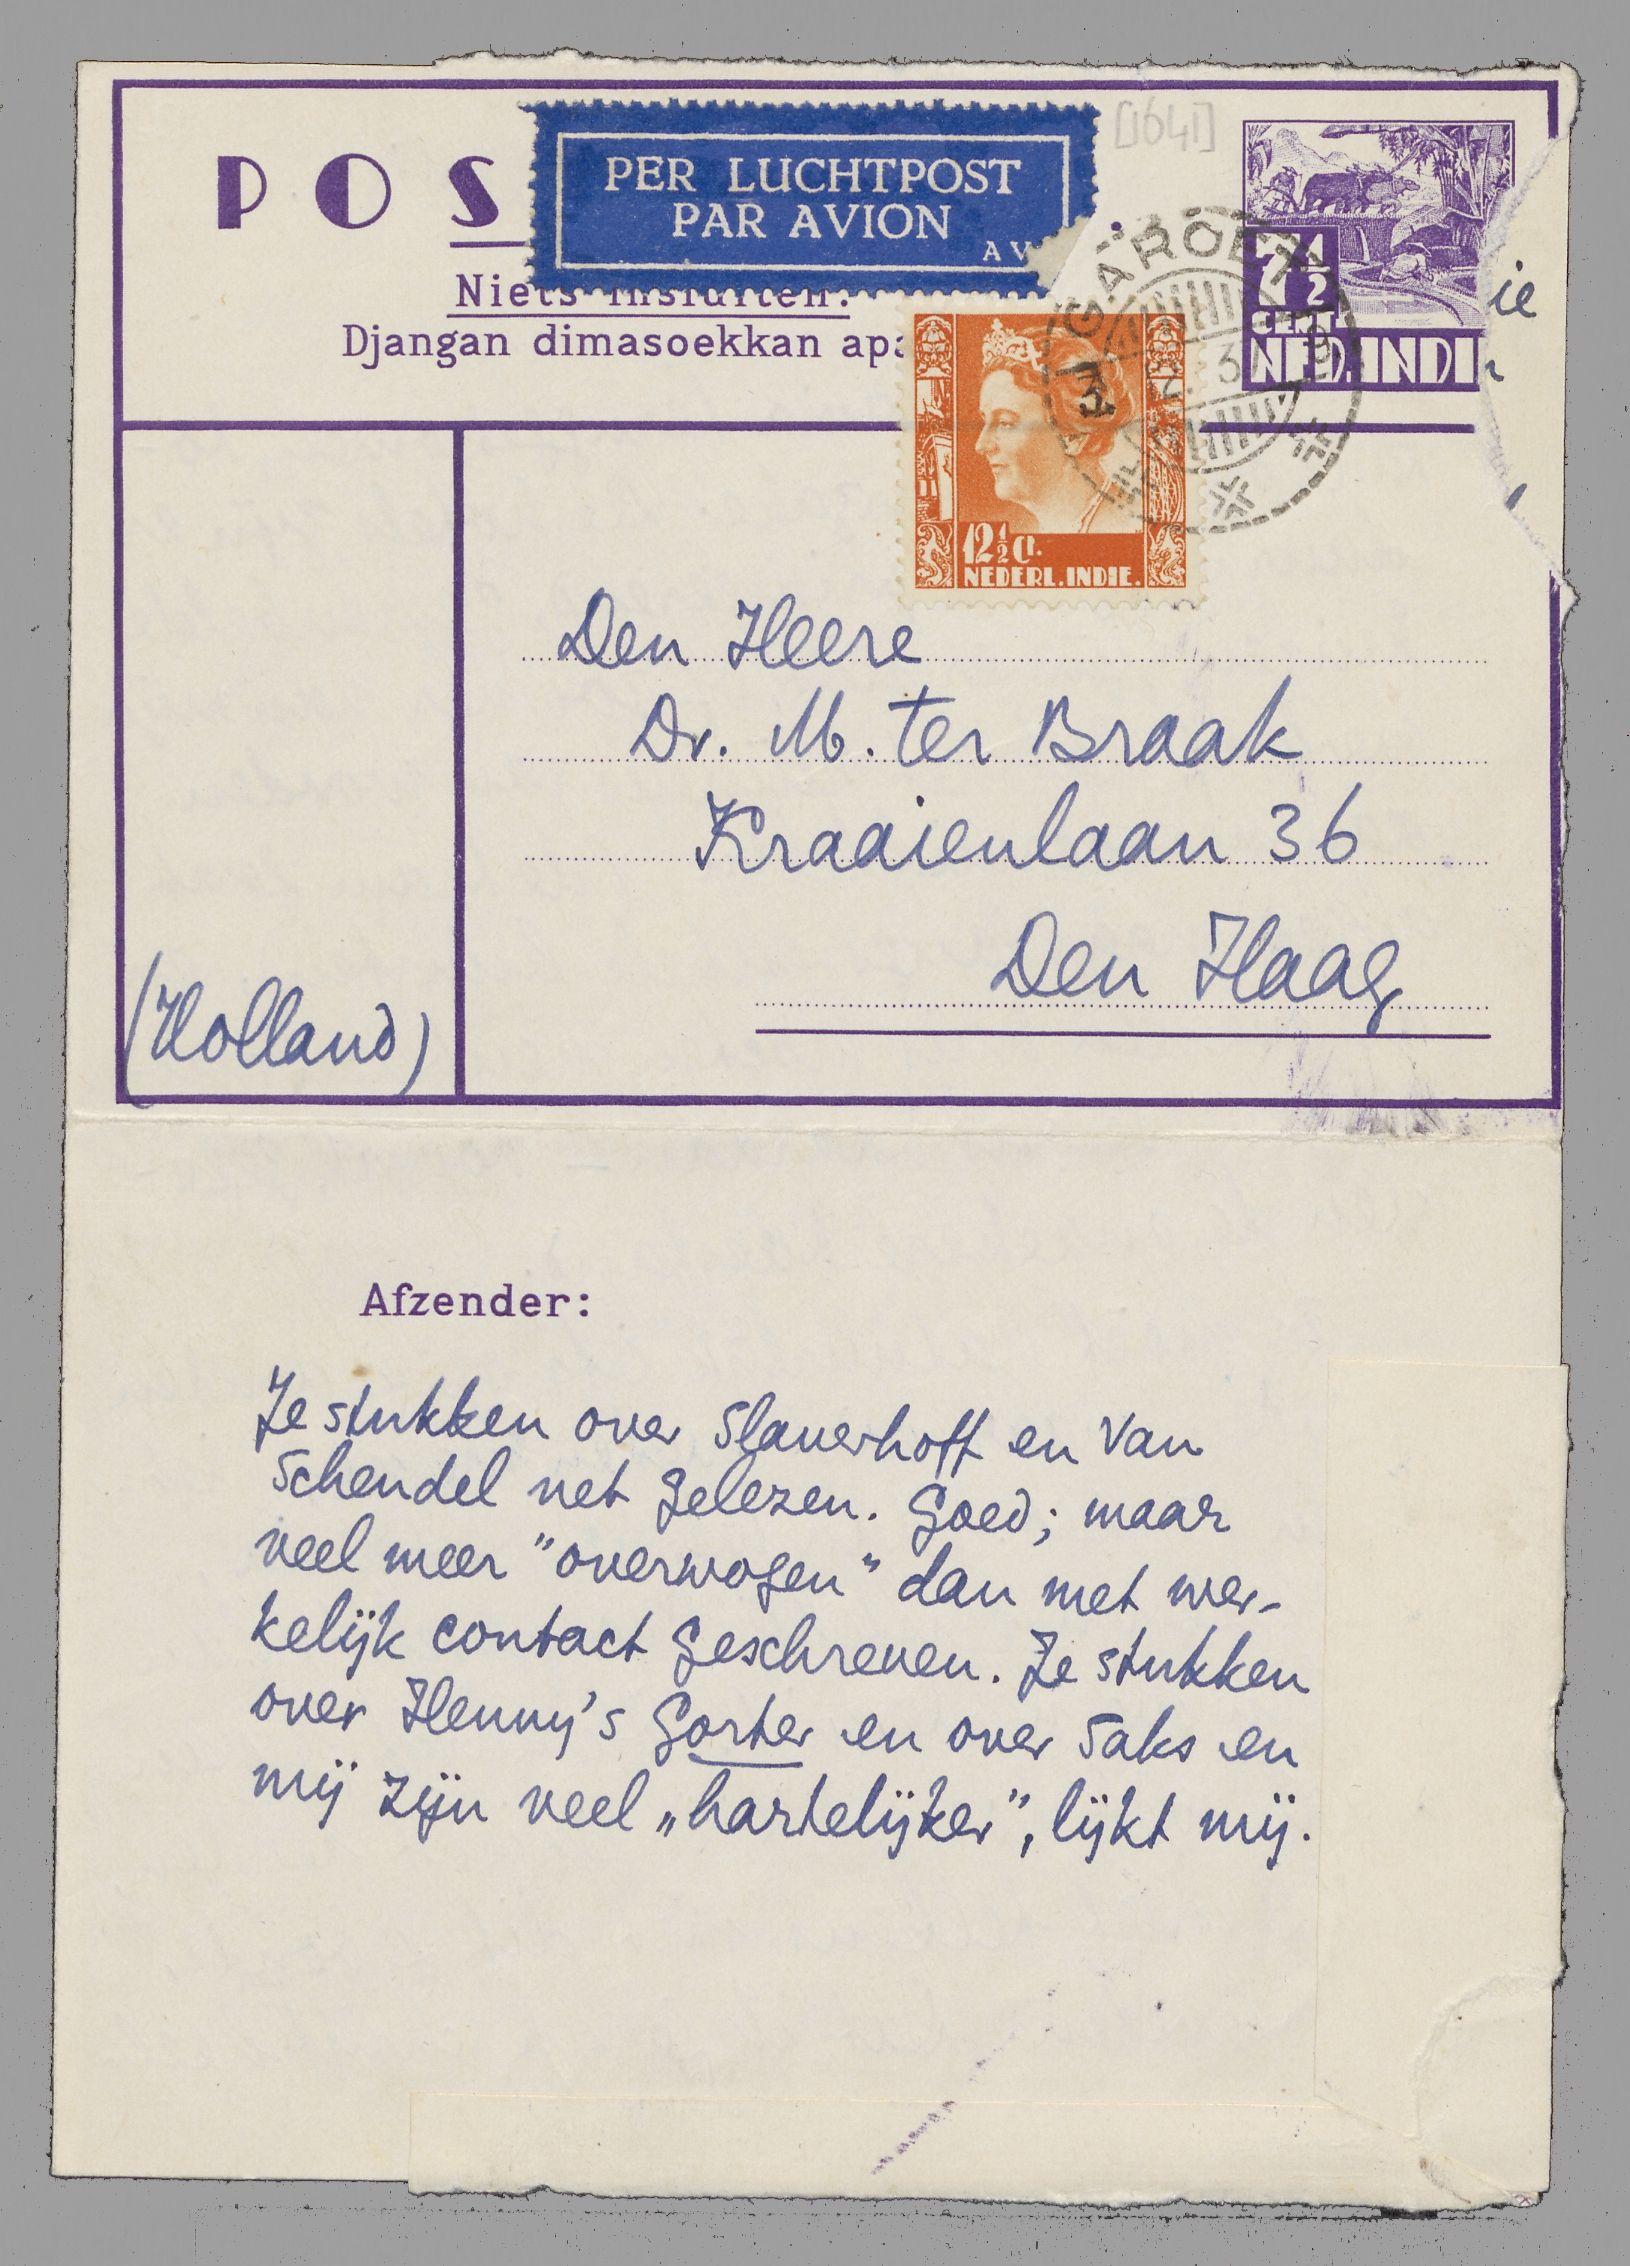 [1641]
POS
PER LUCHTPOST
PAR AVION
AV
Niets insluiten.
Djangan dimasoekkan apa
7½
CENT
NED. INDI
ie
GAROET
3.
12½ Ct.
NEDERL. INDIE.
Den Heere
Dr. M. ter Braak
Kraaienlaan 36
Den Haag
(Holland)
Afzender:
Je stukken over Slauerhoff en Van
Schendel net gelezen. Goed; maar
veel meer "overwogen" dan met wer-
kelijk contact geschreven. Je stukken
over Henny's Gorter en over Saks en
mij zijn veel „hartelijker", lijkt mij.